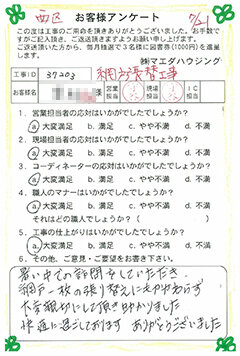 西区
お客様アンケート
この度は工事のご用命を頂きありがとうございました。お手数で
すがご記入頂き、ご返送頂きますようお願い申し上げます。
ご返送頂いた方から、毎月抽選で3名様に図書券(1000円)を進呈
致します。
㈱マエダハウジング
工事ID 37203
網戸張替工事
お客様名 様
営業担当 現場担当 IC担当
1. 営業担当者の応対はいかがでしたでしょうか?
a. 大変満足 b. 満足 c. やや不満 d. 不満
2. 現場担当者の応対はいかがでしたでしょうか?
a. 大変満足 b. 満足 c. やや不満 d. 不満
3. コーディネーターの応対はいかがでしたでしょうか?
a. 大変満足 b. 満足 c. やや不満 d. 不満
4. 職人のマナーはいかがでしたでしょうか?
a. 大変満足 b. 満足 c. やや不満 d. 不満
それはどの職人でしょうか?( )
5. 工事の仕上がりはいかがでしたでしょうか?
a. 大変満足 b. 満足 c. やや不満 d. 不満
6. その他、ご意見・ご要望をお書き下さい。
暑い中での訪問をしていただき、
網戸一枚の張り替えにもかかわらず
大変親切にして頂き助かりました
快適に過ごしております ありがとうございました